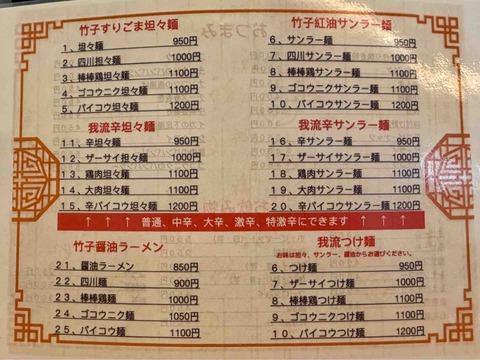 竹子すりごま坦々麺
1、坦々麺 950円
2、四川坦々麺 1000円
3、棒棒鶏坦々麺 1100円
4、ゴコウニク坦々麺 1100円
5、パイコウ坦々麺 1200円
竹子紅油サンラー麺
6、サンラー麺 950円
7、四川サンラー麺 1000円
8、棒棒鶏サンラー麺 1100円
9、ゴコウニクサンラー麺 1100円
10、パイコウサンラー麺 1200円
我流辛坦々麺
11、辛坦々麺 950円
12、ザーサイ担々麺 1000円
13、鶏肉坦々麺 1100円
14、大肉坦々麺 1100円
15、辛パイコウ坦々麺 1200円
我流辛サンラー麺
16、辛サンラー麺 950円
17、ザーサイサンラー麺 1000円
18、鶏肉サンラー麺 1100円
19、大肉サンラー麺 1100円
20、辛パイコウサンラー麺 1200円
↑ ↑ ↑ 普通、中辛、大辛、激辛、特激辛にできます ↑ ↑ ↑
竹子醤油ラーメン
21、醤油ラーメン 850円
22、四川麺 900円
23、棒棒鶏麺 1000円
24、ゴコウニク麺 1050円
25、パイコウ麺 1100円
我流つけ麺
お味は坦々、サンラー、醤油からお選びください。
6、つけ麺 950円
7、ザーサイつけ麺 1000円
8、棒棒鶏つけ麺 1100円
9、ゴコウニクつけ麺 1100円
10、パイコウつけ麺 1200円